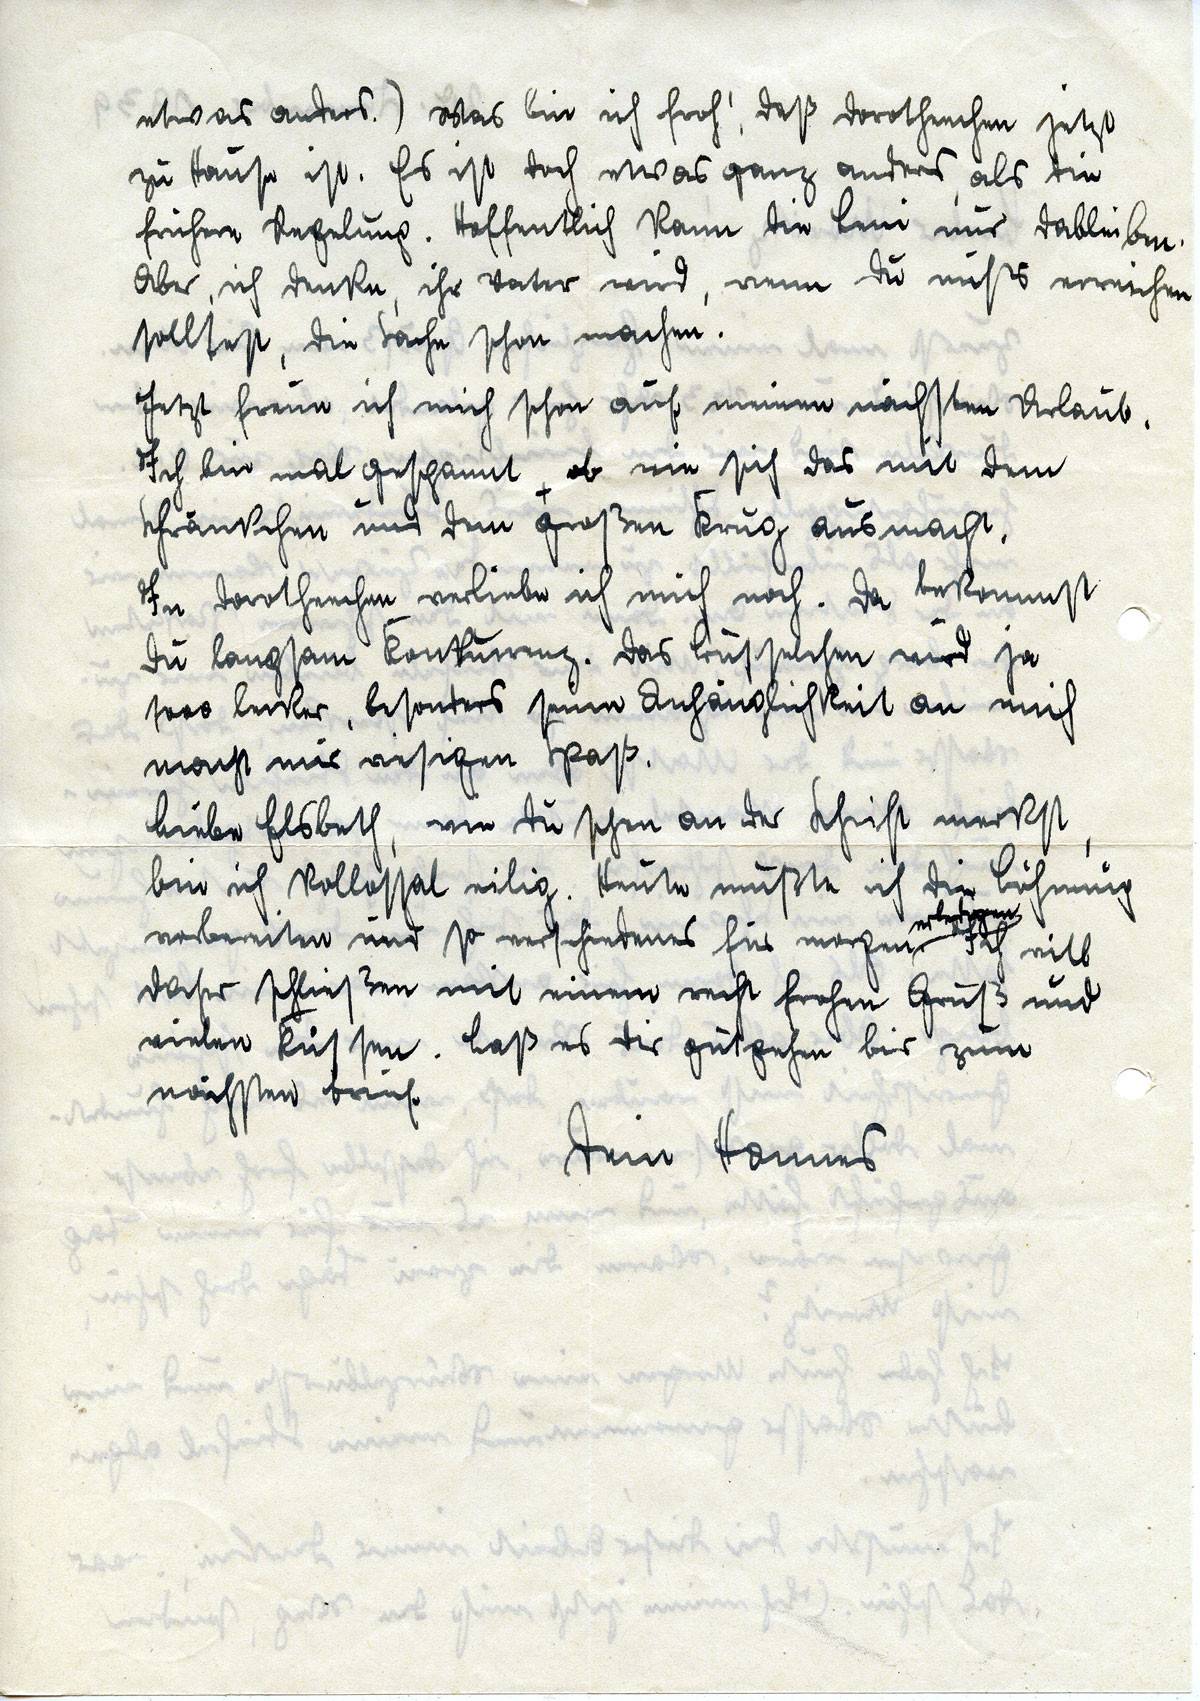 etwas anders.) Was bin ich froh', daß Dorotheechen jetzt
zu Hause ist. Es ist doch etwas ganz anders, als die
frühere Regelung. Hoffentlich kann die Leni nur dableiben.
Aber, ich denke, ihr Vater wird, wenn du nichts erreichen
solltest, die Sache schon machen.
Jetzt freue ich mich schon auf meinen nächsten Urlaub.
Ich bin mal gespannt, ob wie sich das mit dem
Schränkchen und dem großen Krug ausmacht.
In Dorotheechen verliebe ich mich noch. Da bekommst
du langsam Konkurrenz. Das Krüsselchen wird ja
sooo lecker, besonders seine Anhänglichkeit an mich
macht mir riesigen Spaß.
Liebe Elsbeth, wie du schon an der Schrift merkst,
bin ich kollossal eilig. Heute mußte ich die Löhnung
vorbereiten und so verschiedenes für morgen erledigen. Ich will
daher schließen mit einem recht frohen Gruß und
vielen Küssen. Laß es dir gutgehen bis zum
nächsten Brief.
Dein Hannes